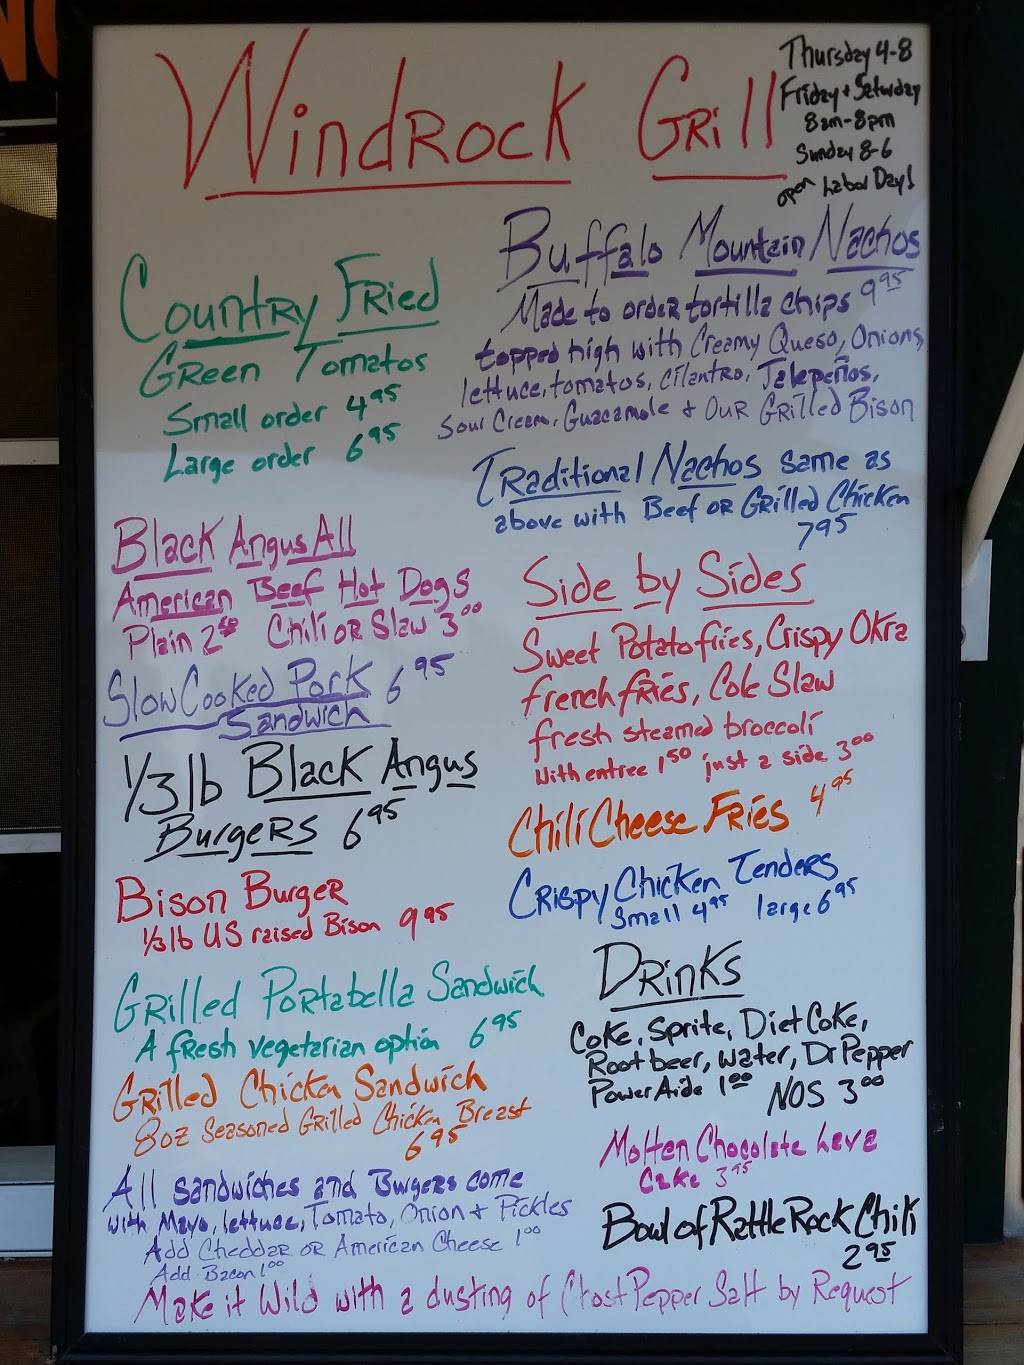 Windrock Grill
Thursday 4-8
Friday + Saturday
8am-8pm
Sunday 8-6
open Labor Day!
Country Fried
Green Tomatos
Small order 4.95
Large order 6.95
Black Angus All
American Beef Hot Dogs
Plain 2.50 Chili or Slaw 3.00
Slow Cooked Pork 6.95
Sandwich
1/3 lb Black Angus
Burgers 6.95
Bison Burger
1/3 lb US raised Bison 9.95
Grilled Portabella Sandwich
A fresh vegetarian option 6.95
Grilled Chicken Sandwich
8oz Seasoned Grilled Chicken Breast
6.95
All sandwiches and Burgers come
with Mayo, lettuce, Tomato, Onion + Pickles
Add Cheddar or American Cheese 1.00
Add Bacon 1.00
Buffalo Mountain Nachos
Made to order tortilla chips 9.95
topped high with Creamy Queso, Onions,
lettuce, tomatos, cilantro, Jalepeños,
Sour Cream, Guacamole + Our Grilled Bison
Traditional Nachos same as
above with Beef or Grilled Chicken
7.95
Side by Sides
Sweet Potato fries, Crispy Okra
french fries, Cole Slaw
fresh steamed broccoli
With entree 1.50 just a side 3.00
Chili Cheese Fries 4.95
Crispy Chicken Tenders
Small 4.95 large 6.95
Drinks
Coke, Sprite, Diet Coke,
Root beer, water, Dr Pepper
PowerAide 1.00 NOS 3.00
Molten Chocolate Lava
Cake 3.95
Bowl of Rattle Rock Chili
2.95
Make it Wild with a dusting of Ghost Pepper Salt by Request